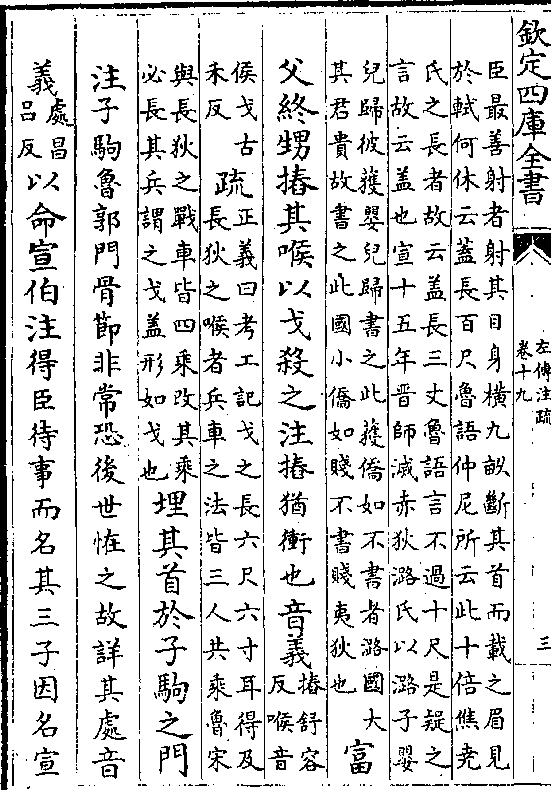 欽定四庫全書
左傳注疏
卷十九
三
臣最善射者射其目身橫九畝斷其首而載之眉見
於軾何休云蓋長百尺魯語仲尼所云此十倍僬堯
氏之長者故云蓋長三丈魯語言不過十尺是疑之
言故云盖也宣十五年晉師滅赤狄潞氏以潞子嬰
兒歸彼獲嬰兒歸書之此獲僑如不書者潞國大
其君貴故書之此國小僑如賤不書賤夷狄也
富
父終甥摏其喉以戈殺之注摏猶衝也音義
摏舒容
反喉音
侯戈古
禾反
疏
正義曰考工記戈之長六尺六寸耳得及
長狄之喉者兵車之法皆三人共乘魯宋
與長狄之戰車皆四乘改其乘
必長其兵謂之戈盖形如戈也
埋其首於子駒之門
注子駒魯郭門骨節非常恐後世怪之故詳其處音
義
處昌
吕反
以命宣伯注得臣待事而名其三子因名宣